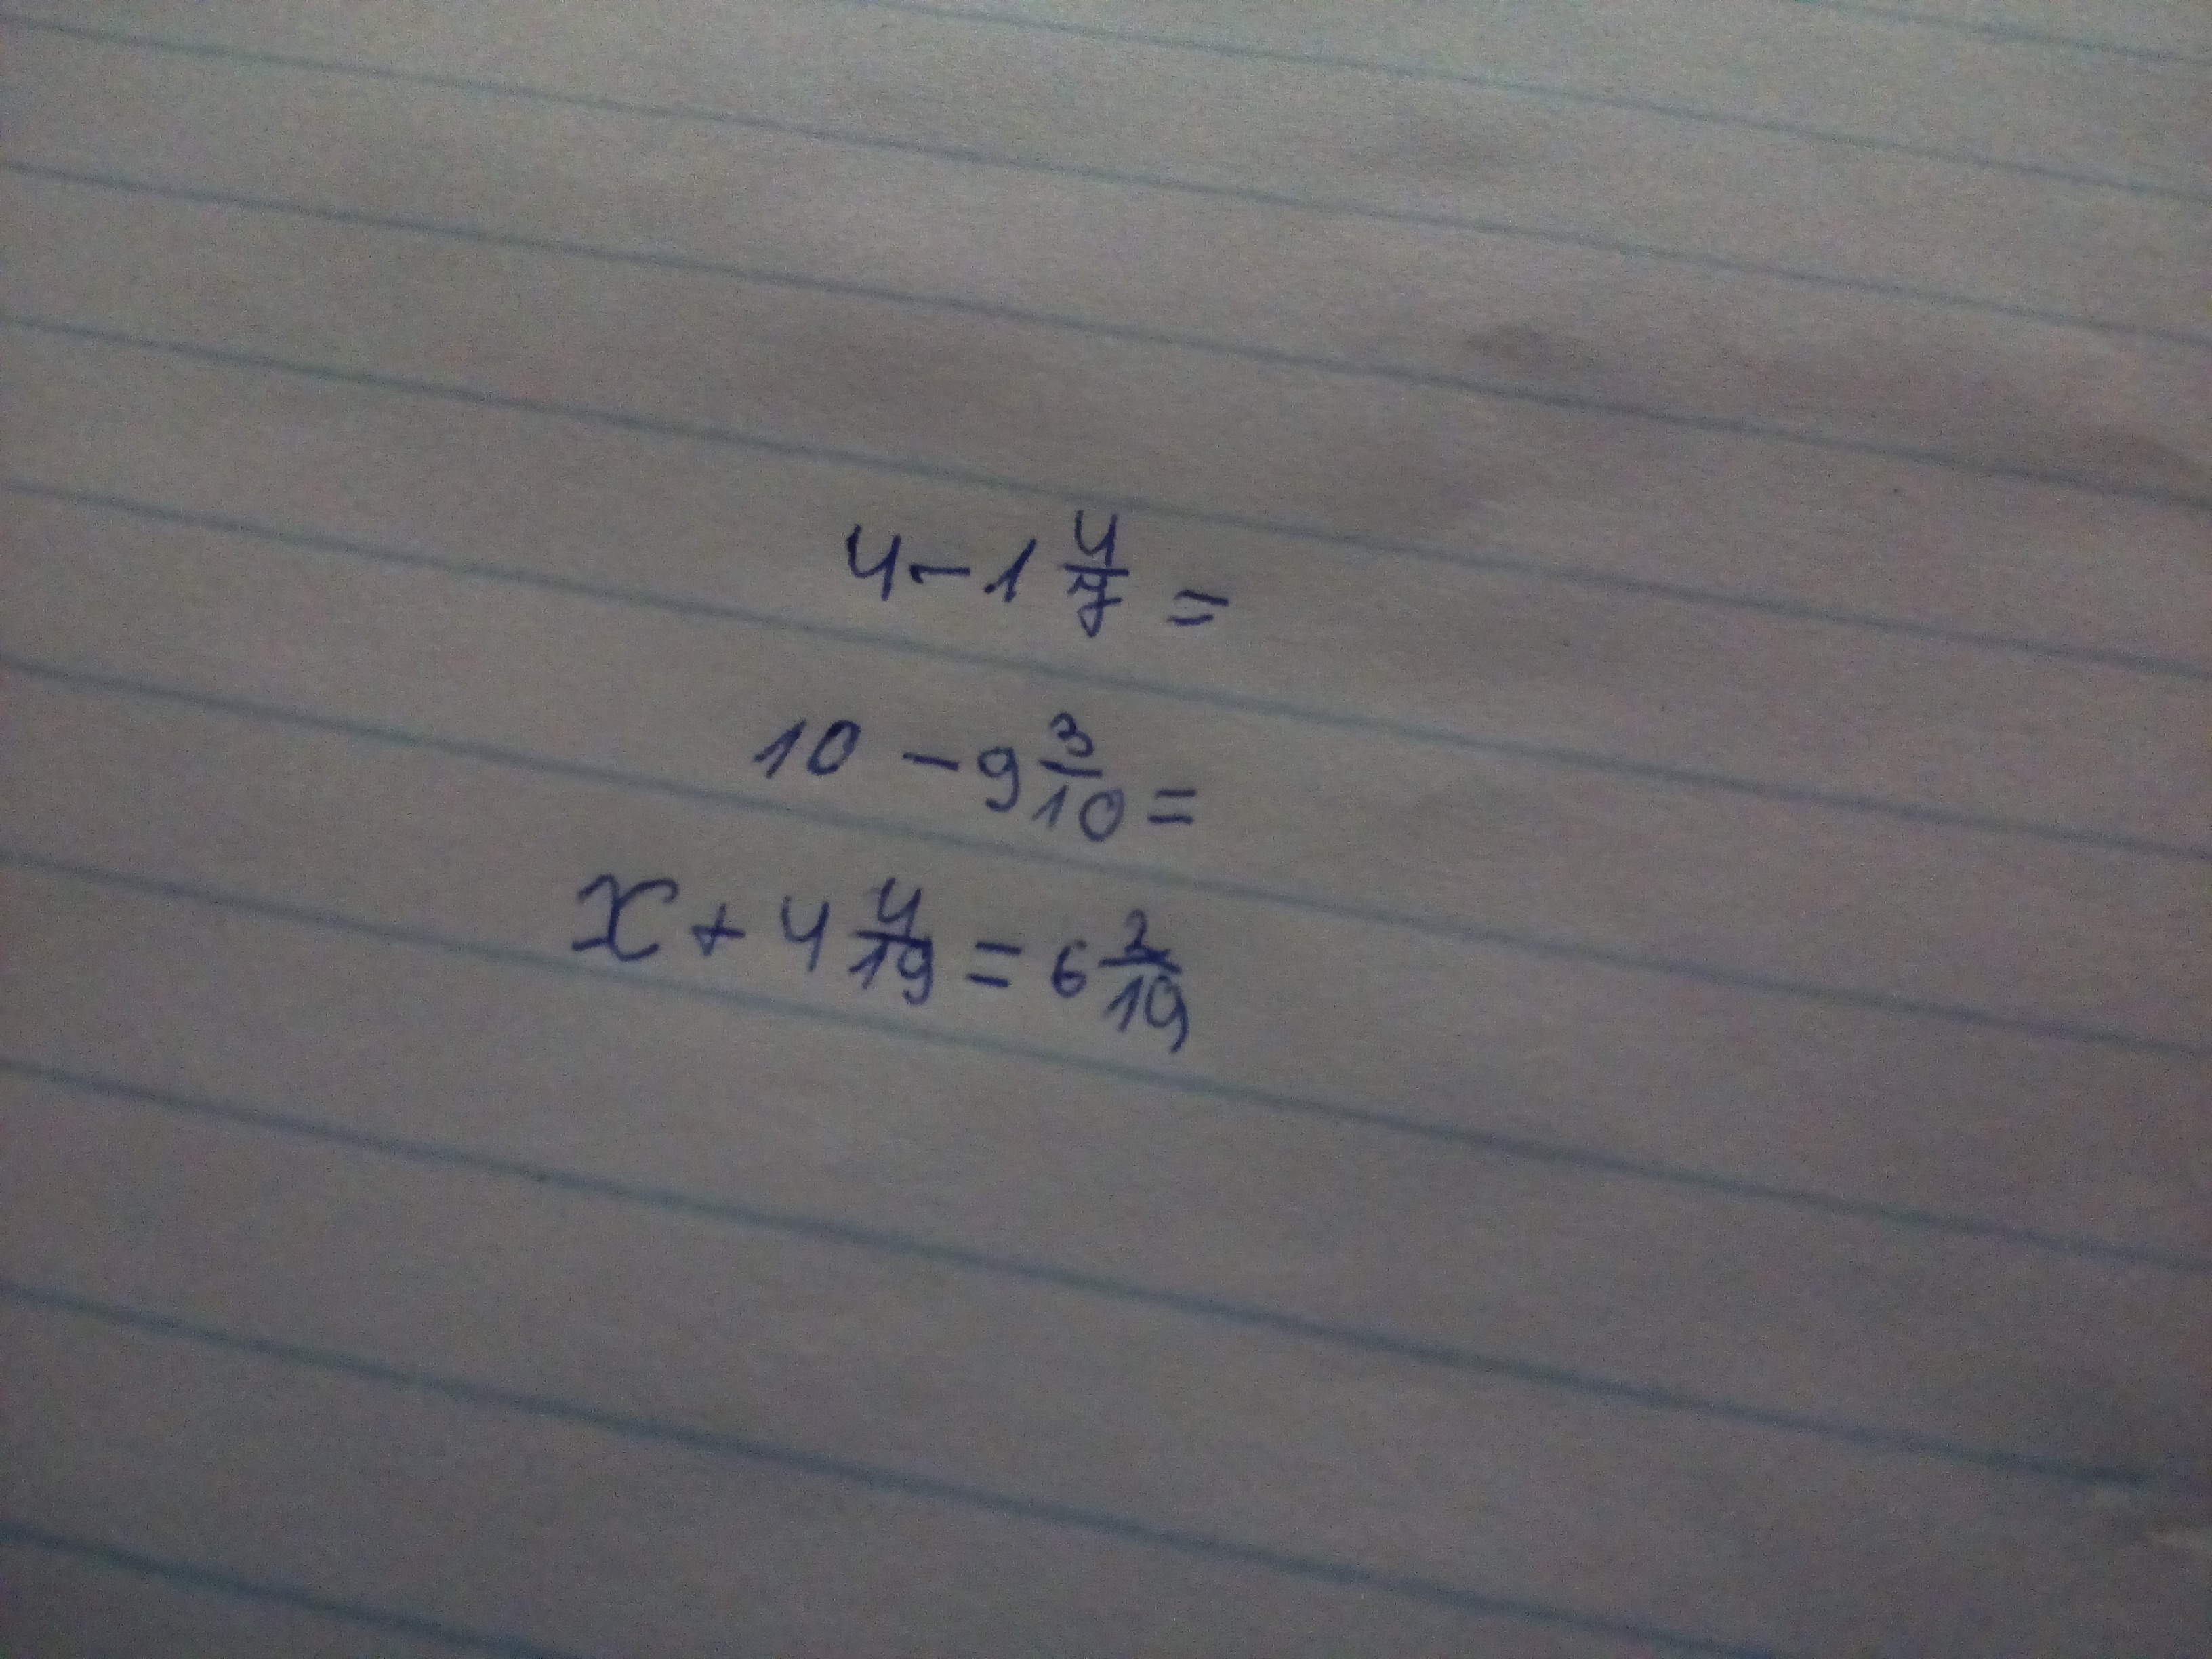 4 - 1 4/7 =
10 - 9 3/10 =
x + 4 4/19 = 6 2/19